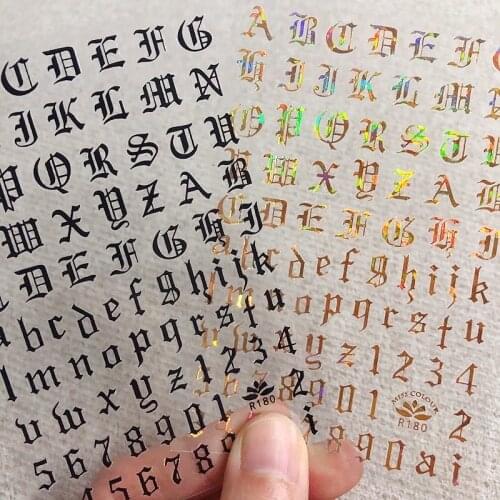 C D E F G
J K L M N
P Q R S T U
W X Y Z A B
C D E F G H J
a b c d e f g h i j k
l m n o p q r s t u
v w x y z 1 2 3 4
5 6 7 8 9 0 1 2
4 5 6 7 8 9 0 i
R180
A B C D E F G
H I J K L M N
O P Q R S T U
V W X Y Z A B
C D E F G H J
a b c d e f g h i j k
m n o p q r s t u
y z 1 2 3 4
5 6 7 8 9 0 1 2
8 9 0 a i
MISS COLOUR
R180